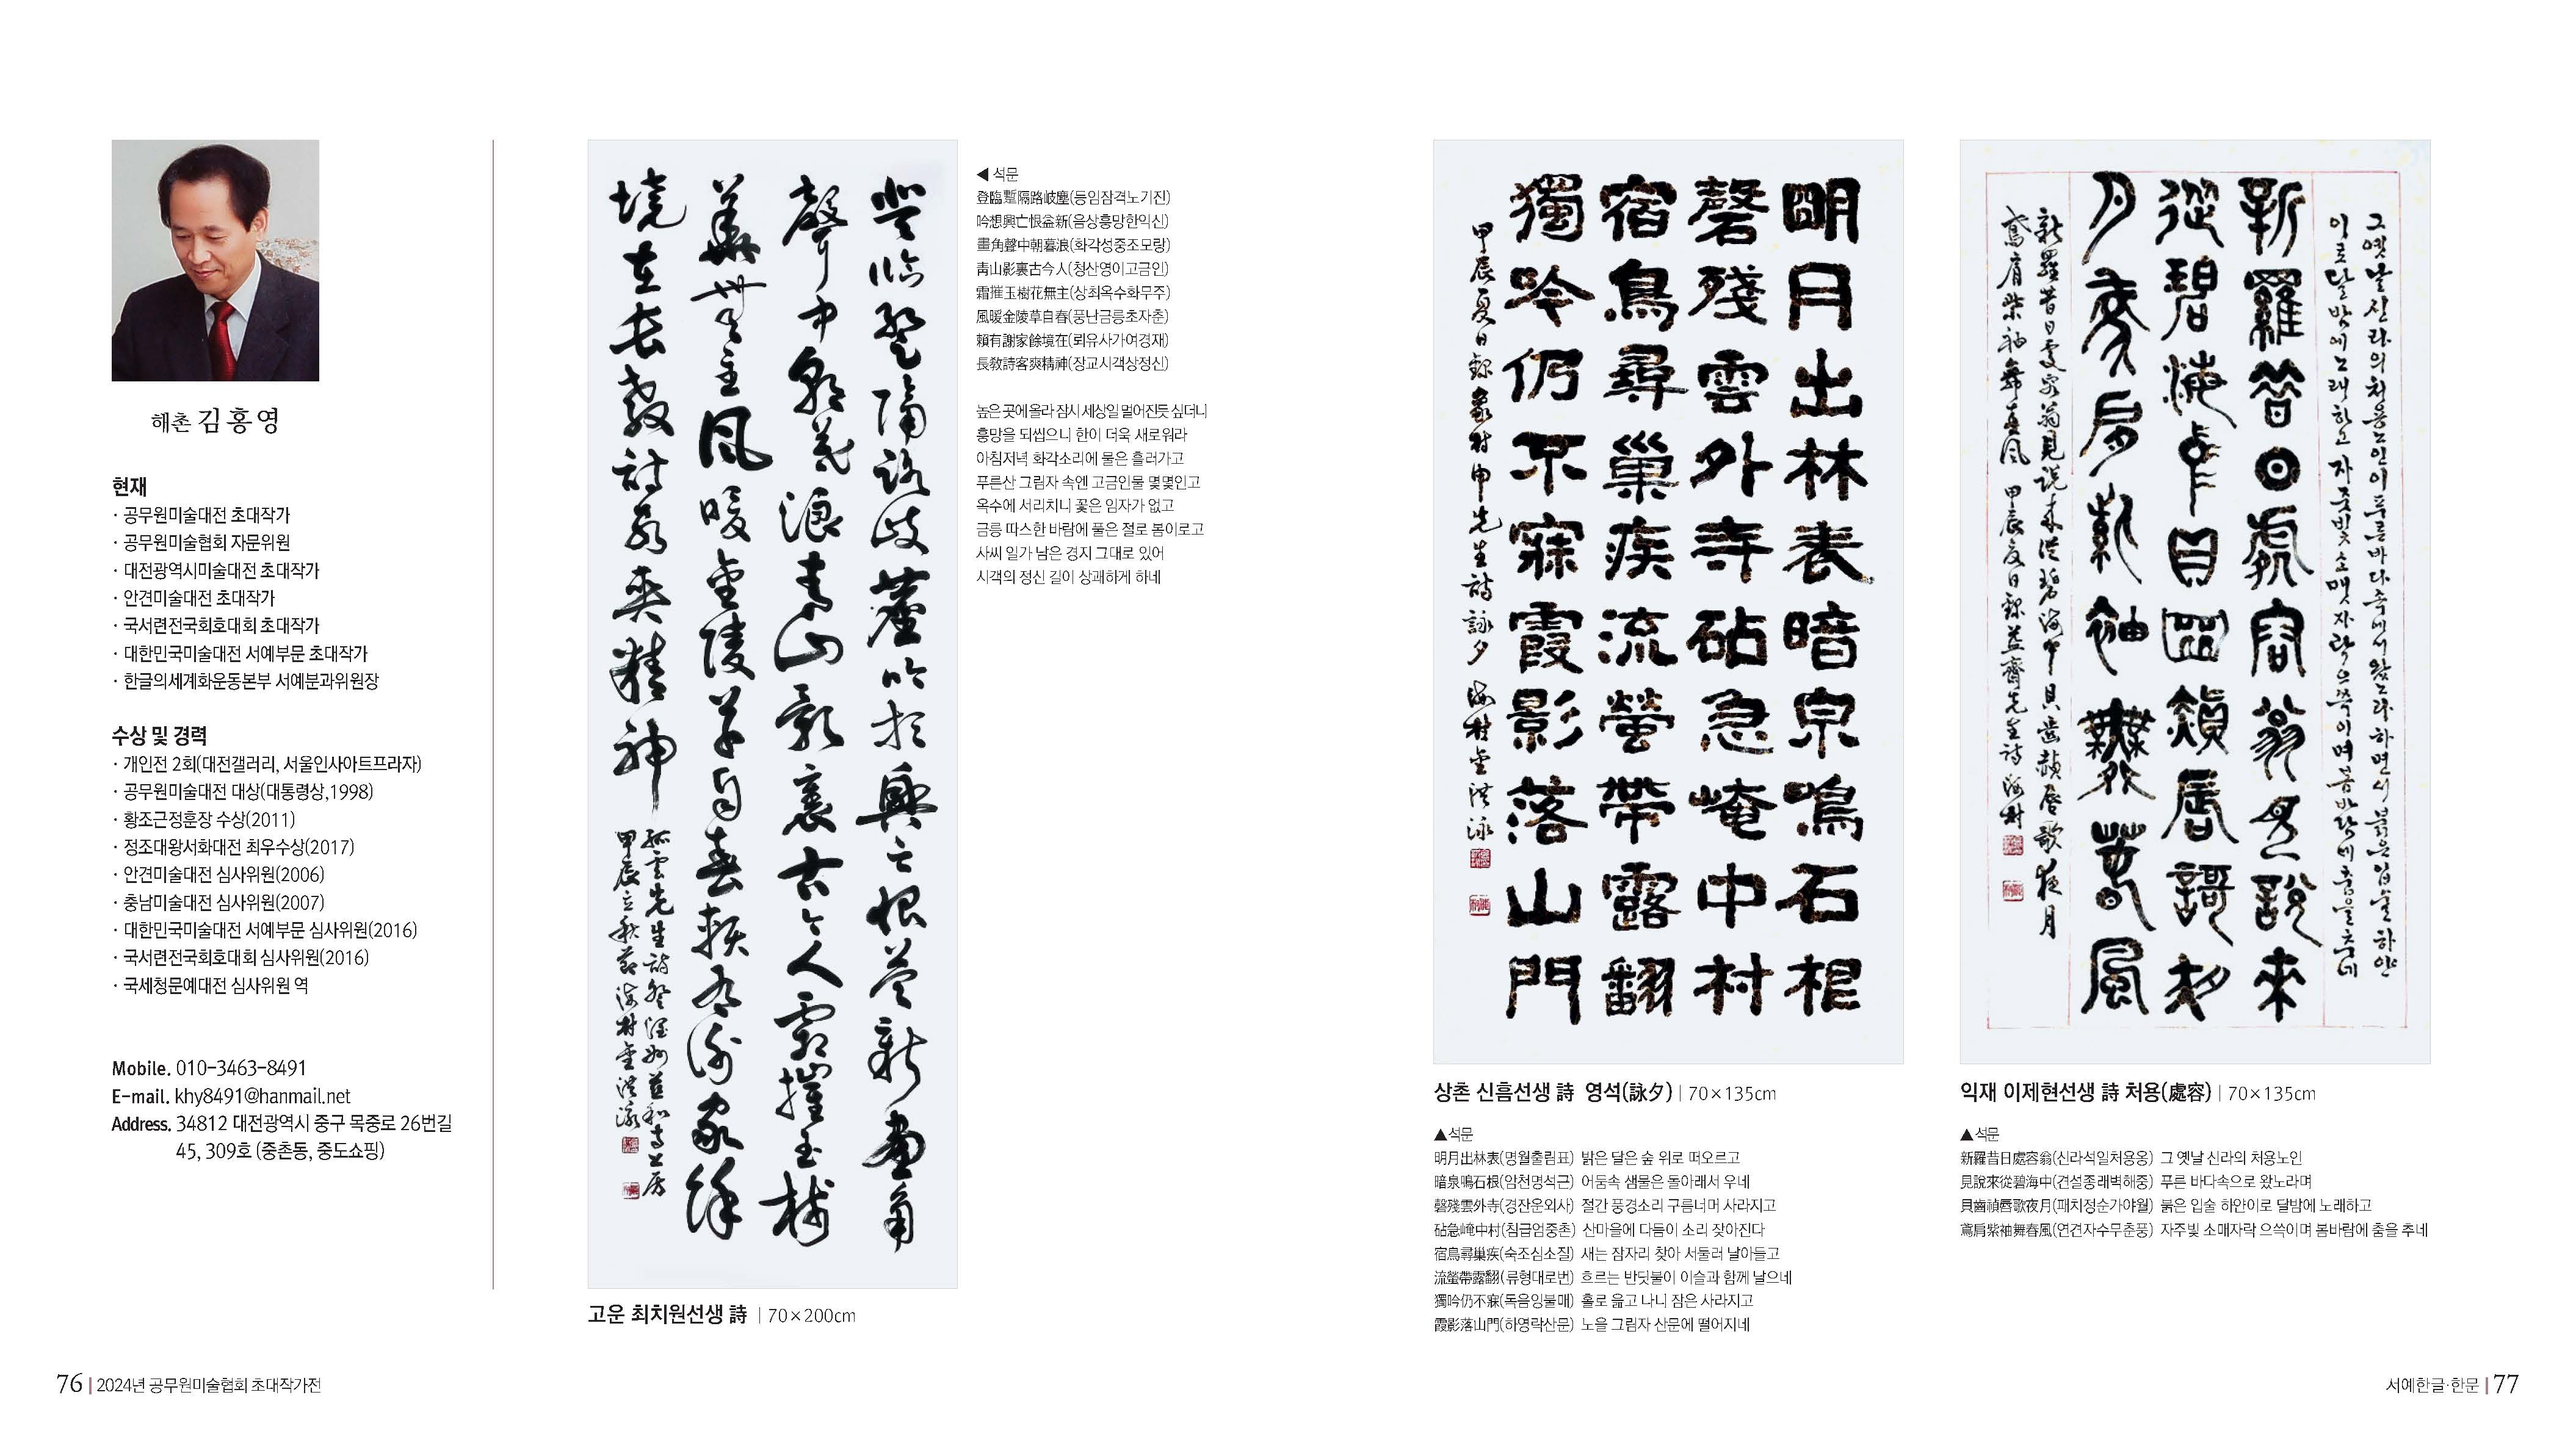 해촌 김홍영
현재
· 공무원미술대전 초대작가
· 공무원미술협회 자문위원
· 대전광역시미술대전 초대작가
· 안견미술대전 초대작가
· 국서련전국회호대회 초대작가
· 대한민국미술대전 서예부문 초대작가
· 한글의세계화운동본부 서예분과위원장
수상 및 경력
· 개인전 2회(대전갤러리, 서울인사아트프라자)
· 공무원미술대전 대상(대통령상,1998)
· 황조근정훈장 수상(2011)
· 정조대왕서화대전 최우수상(2017)
· 안견미술대전 심사위원(2006)
· 충남미술대전 심사위원(2007)
· 대한민국미술대전 서예부문 심사위원(2016)
· 국서련전국회호대회 심사위원(2016)
· 국세청문예대전 심사위원 역
Mobile. 010-3463-8491
E-mail. khy8491@hanmail.net
Address. 34812 대전광역시 중구 목중로 26번길
45, 309호 (중촌동, 중도쇼핑)
登臨蹔隔路岐塵
吟想興亡恨益新
畫角聲中朝暮浪
靑山影裏古今人
霜摧玉樹花無主
風暖金陵草自春
賴有謝家餘境在
長敎詩客爽精神
고운 최치원선생 詩 | 70×200cm
◀ 석문
登臨蹔隔路岐塵(등임잠격노기진)
吟想興亡恨益新(음상흥망한익신)
畫角聲中朝暮浪(화각성중조모랑)
靑山影裏古今人(청산영이고금인)
霜摧玉樹花無主(상최옥수화무주)
風暖金陵草自春(풍난금릉초자춘)
賴有謝家餘境在(뢰유사가여경재)
長敎詩客爽精神(장교시객상정신)
높은 곳에 올라 잠시 세상일 멀어진듯 싶더니
흥망을 되씹으니 한이 더욱 새로워라
아침저녁 화각소리에 물은 흘러가고
푸른산 그림자 속엔 고금인물 몇몇인고
옥수에 서리치니 꽃은 임자가 없고
금릉 따스한 바람에 풀은 절로 봄이로고
사씨 일가 남은 경지 그대로 있어
시객의 정신 길이 상쾌하게 하네
明月出林表暗泉鳴石根
磬殘雲外寺砧急崦中村
宿鳥尋巢疾流螢帶露翻
獨吟仍不寐霞影落山門
甲辰夏日錄象村申先生詩詠夕 海村金洪泳
상촌 신흠선생 詩 영석(詠夕) | 70×135cm
▲석문
明月出林表(명월출림표) 밝은 달은 숲 위로 떠오르고
暗泉鳴石根(암천명석근) 어둠속 샘물은 돌아래서 우네
磬殘雲外寺(경잔운외사) 절간 풍경소리 구름너머 사라지고
砧急崦中村(침급엄중촌) 산마을에 다듬이 소리 잦아진다
宿鳥尋巢疾(숙조심소질) 새는 잠자리 찾아 서둘러 날아들고
流螢帶露翻(류형대로번) 흐르는 반딧불이 이슬과 함께 날으네
獨吟仍不寐(독음잉불매) 홀로 읊고 나니 잠은 사라지고
霞影落山門(하영락산문) 노을 그림자 산문에 떨어지네
그 옛날 신라의 처용노인이 푸른바다속에서 왔노라 하면서 붉은입술 하얀
이로 달밤에 노래하고 자주빛 소매자락 으쓱이며 봄바람에 춤을 추네
新羅昔日處容翁見說來
從碧海中貝齒頳唇謌夜
月鳶肩紫袖舞春風
新羅昔日處容翁見說來從碧海中貝齒頳唇歌夜月
鳶肩紫袖舞春風 甲辰夏日錄益齋先生詩 海村
익재 이제현선생 詩 처용(處容) | 70×135cm
▲석문
新羅昔日處容翁(신라석일처용옹) 그 옛날 신라의 처용노인
見說來從碧海中(견설종래벽해중) 푸른 바다속으로 왔노라며
貝齒頳唇歌夜月(패치정순가야월) 붉은 입술 하얀이로 달밤에 노래하고
鳶肩紫袖舞春風(연견자수무춘풍) 자주빛 소매자락 으쓱이며 봄바람에 춤을 추네
76 | 2024년 공무원미술협회 초대작가전
서예한글·한문 | 77